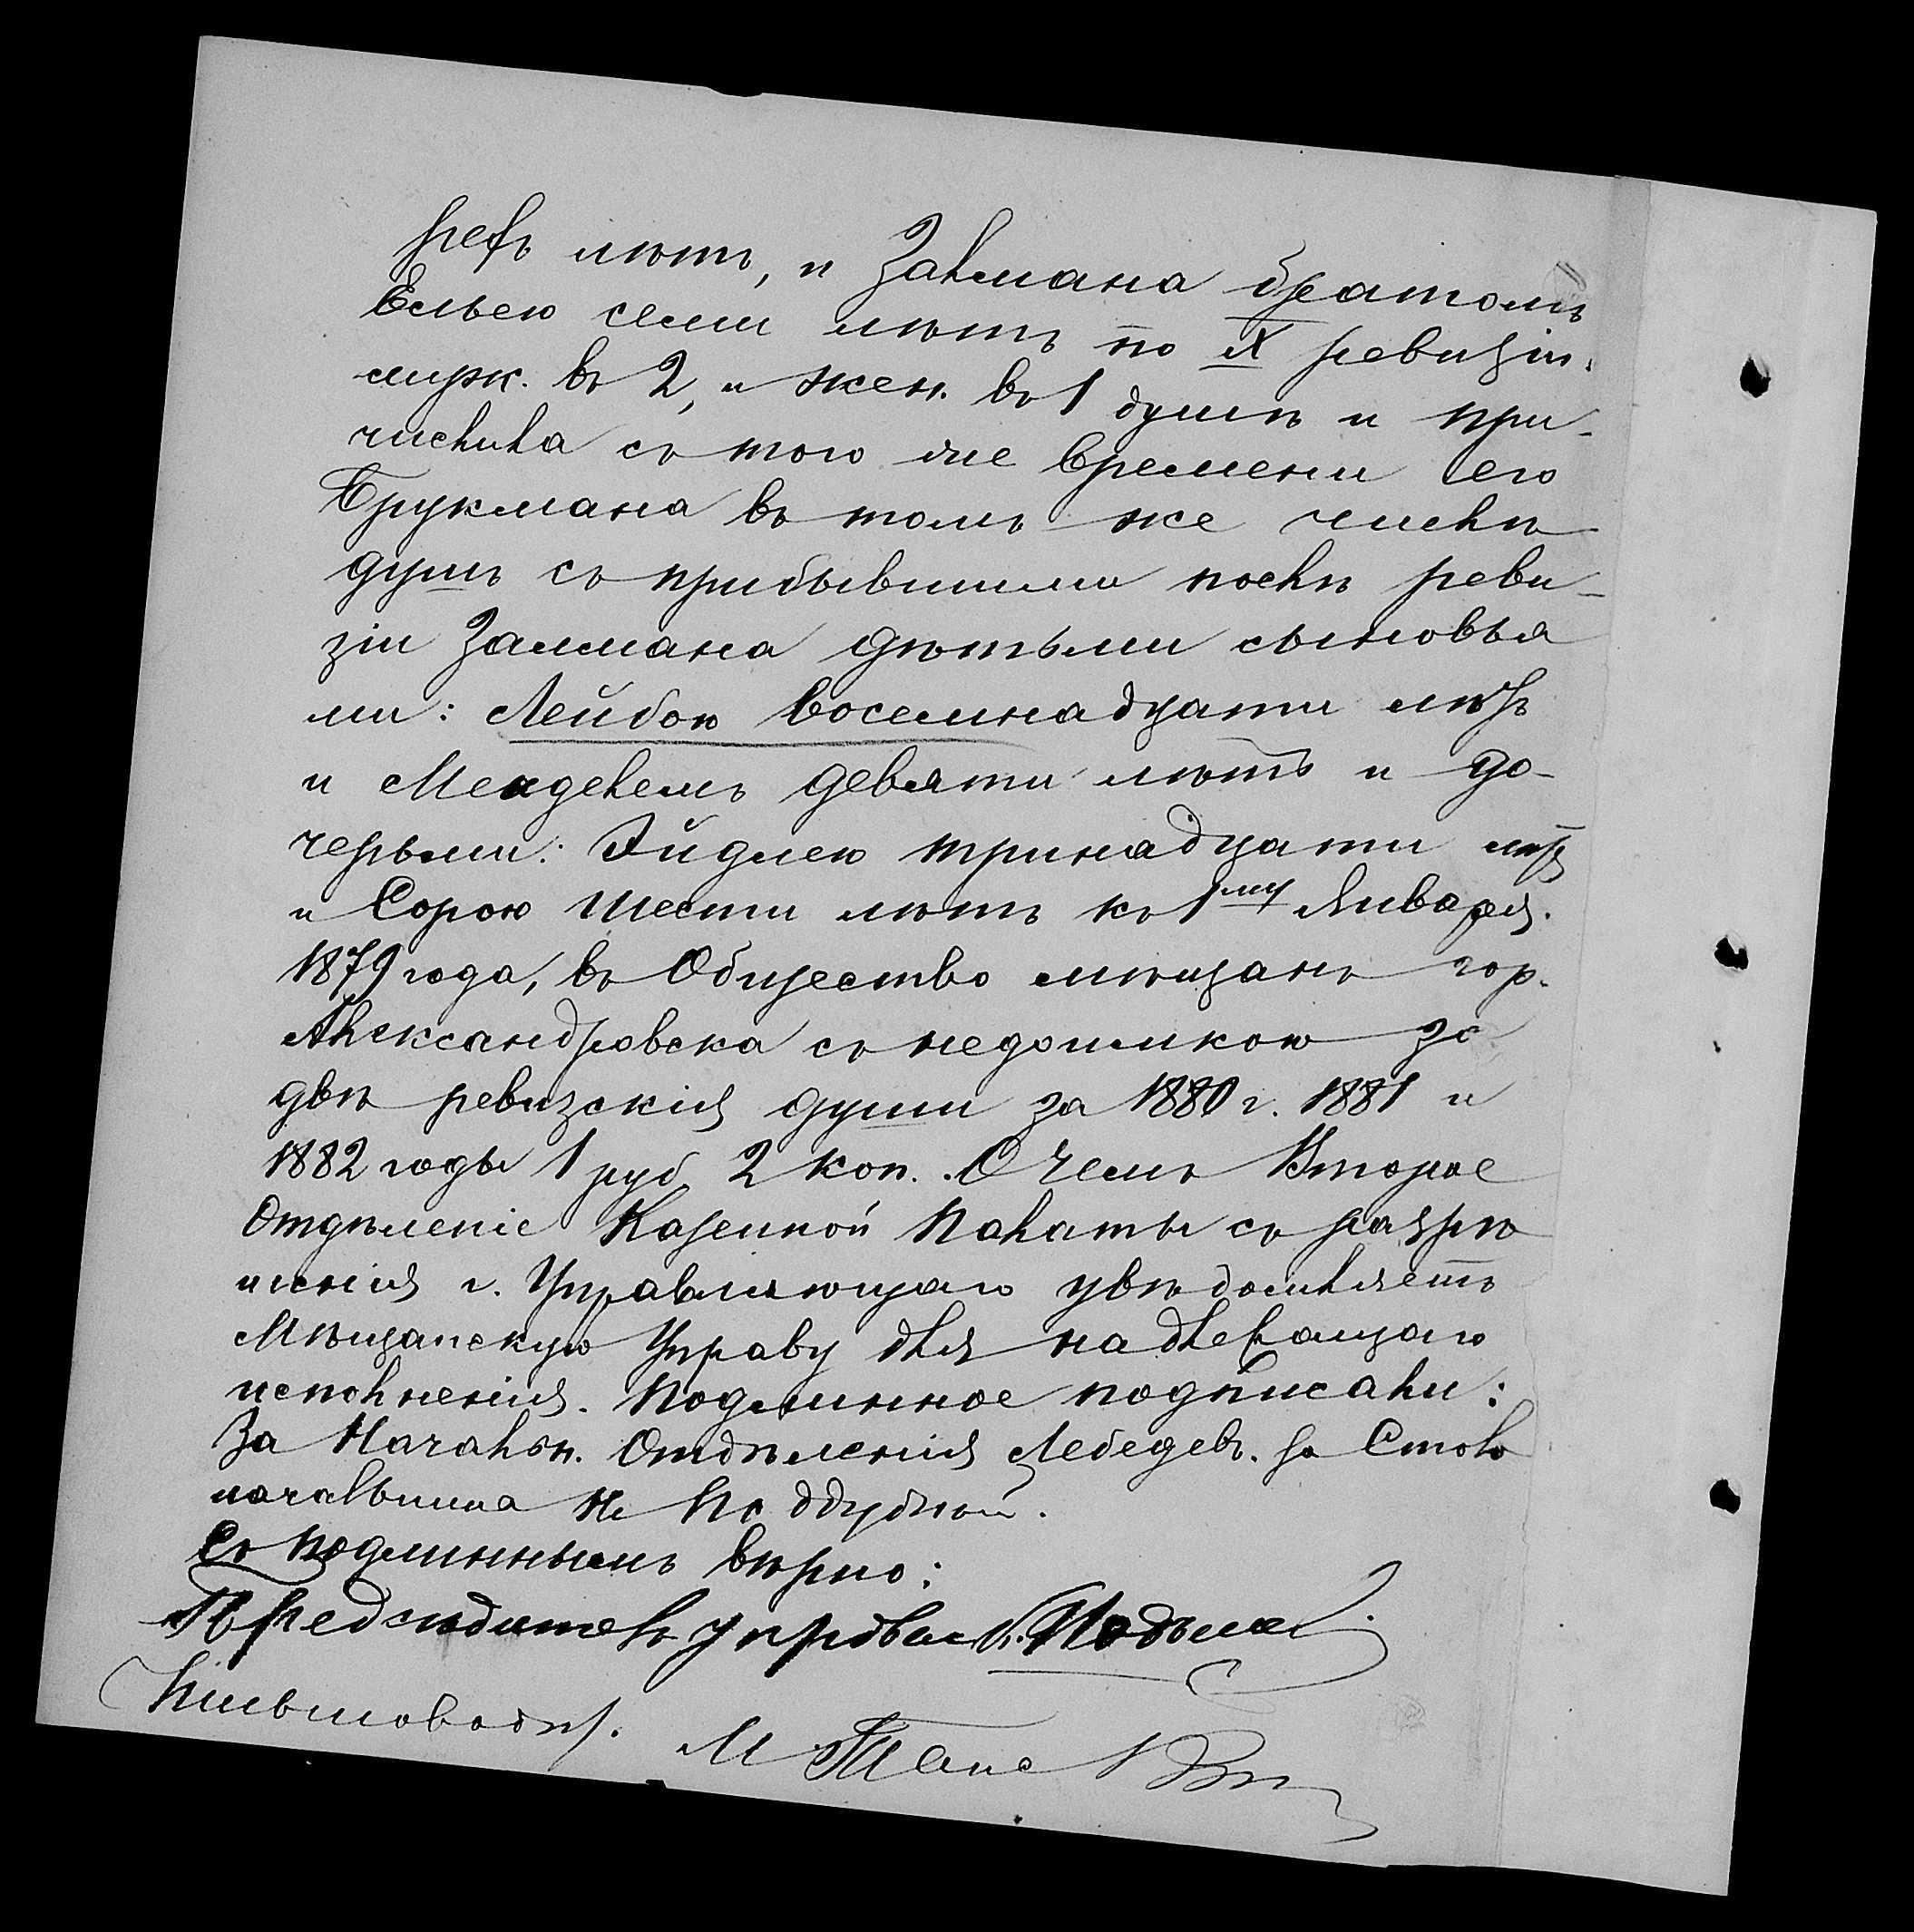 рехъ лѣтъ, и Залмана братомъ
Ельею семи лѣтъ по IX ревизіи.
мужк. въ 2, и жен. въ 1 душѣ и при-
числила съ того же времени его
Брукмана въ томъ же числѣ
душъ съ прибывшими послѣ реви-
зіи Залмана дѣтьми сыновья
ми: Лейбою восемнадцати лѣтъ
и Менделемъ девяти лѣтъ и до-
черьми: Эйдлею тринадцати лѣтъ
и Сорою шести лѣтъ къ 1му Января.
1879 года, въ Общество мѣщанъ гор.
Александровска съ недоимкою за
двѣ ревизскія души за 1880 г. 1881 и
1882 годы 1 руб. 2 коп. О чемъ Второе
Отдѣленіе Казенной Палаты съ разрѣ
шенія г. Управляющаго увѣдомляетъ
Мѣщанскую Управу для надлежащаго
исполненія. Подлинное подписали:
За Начальн. Отдѣленія Лебедевъ. за Столо
начальника Н. Поддубной.
Съ подлиннымъ вѣрно:
Предсѣдатель управы
Письмоводит. М.